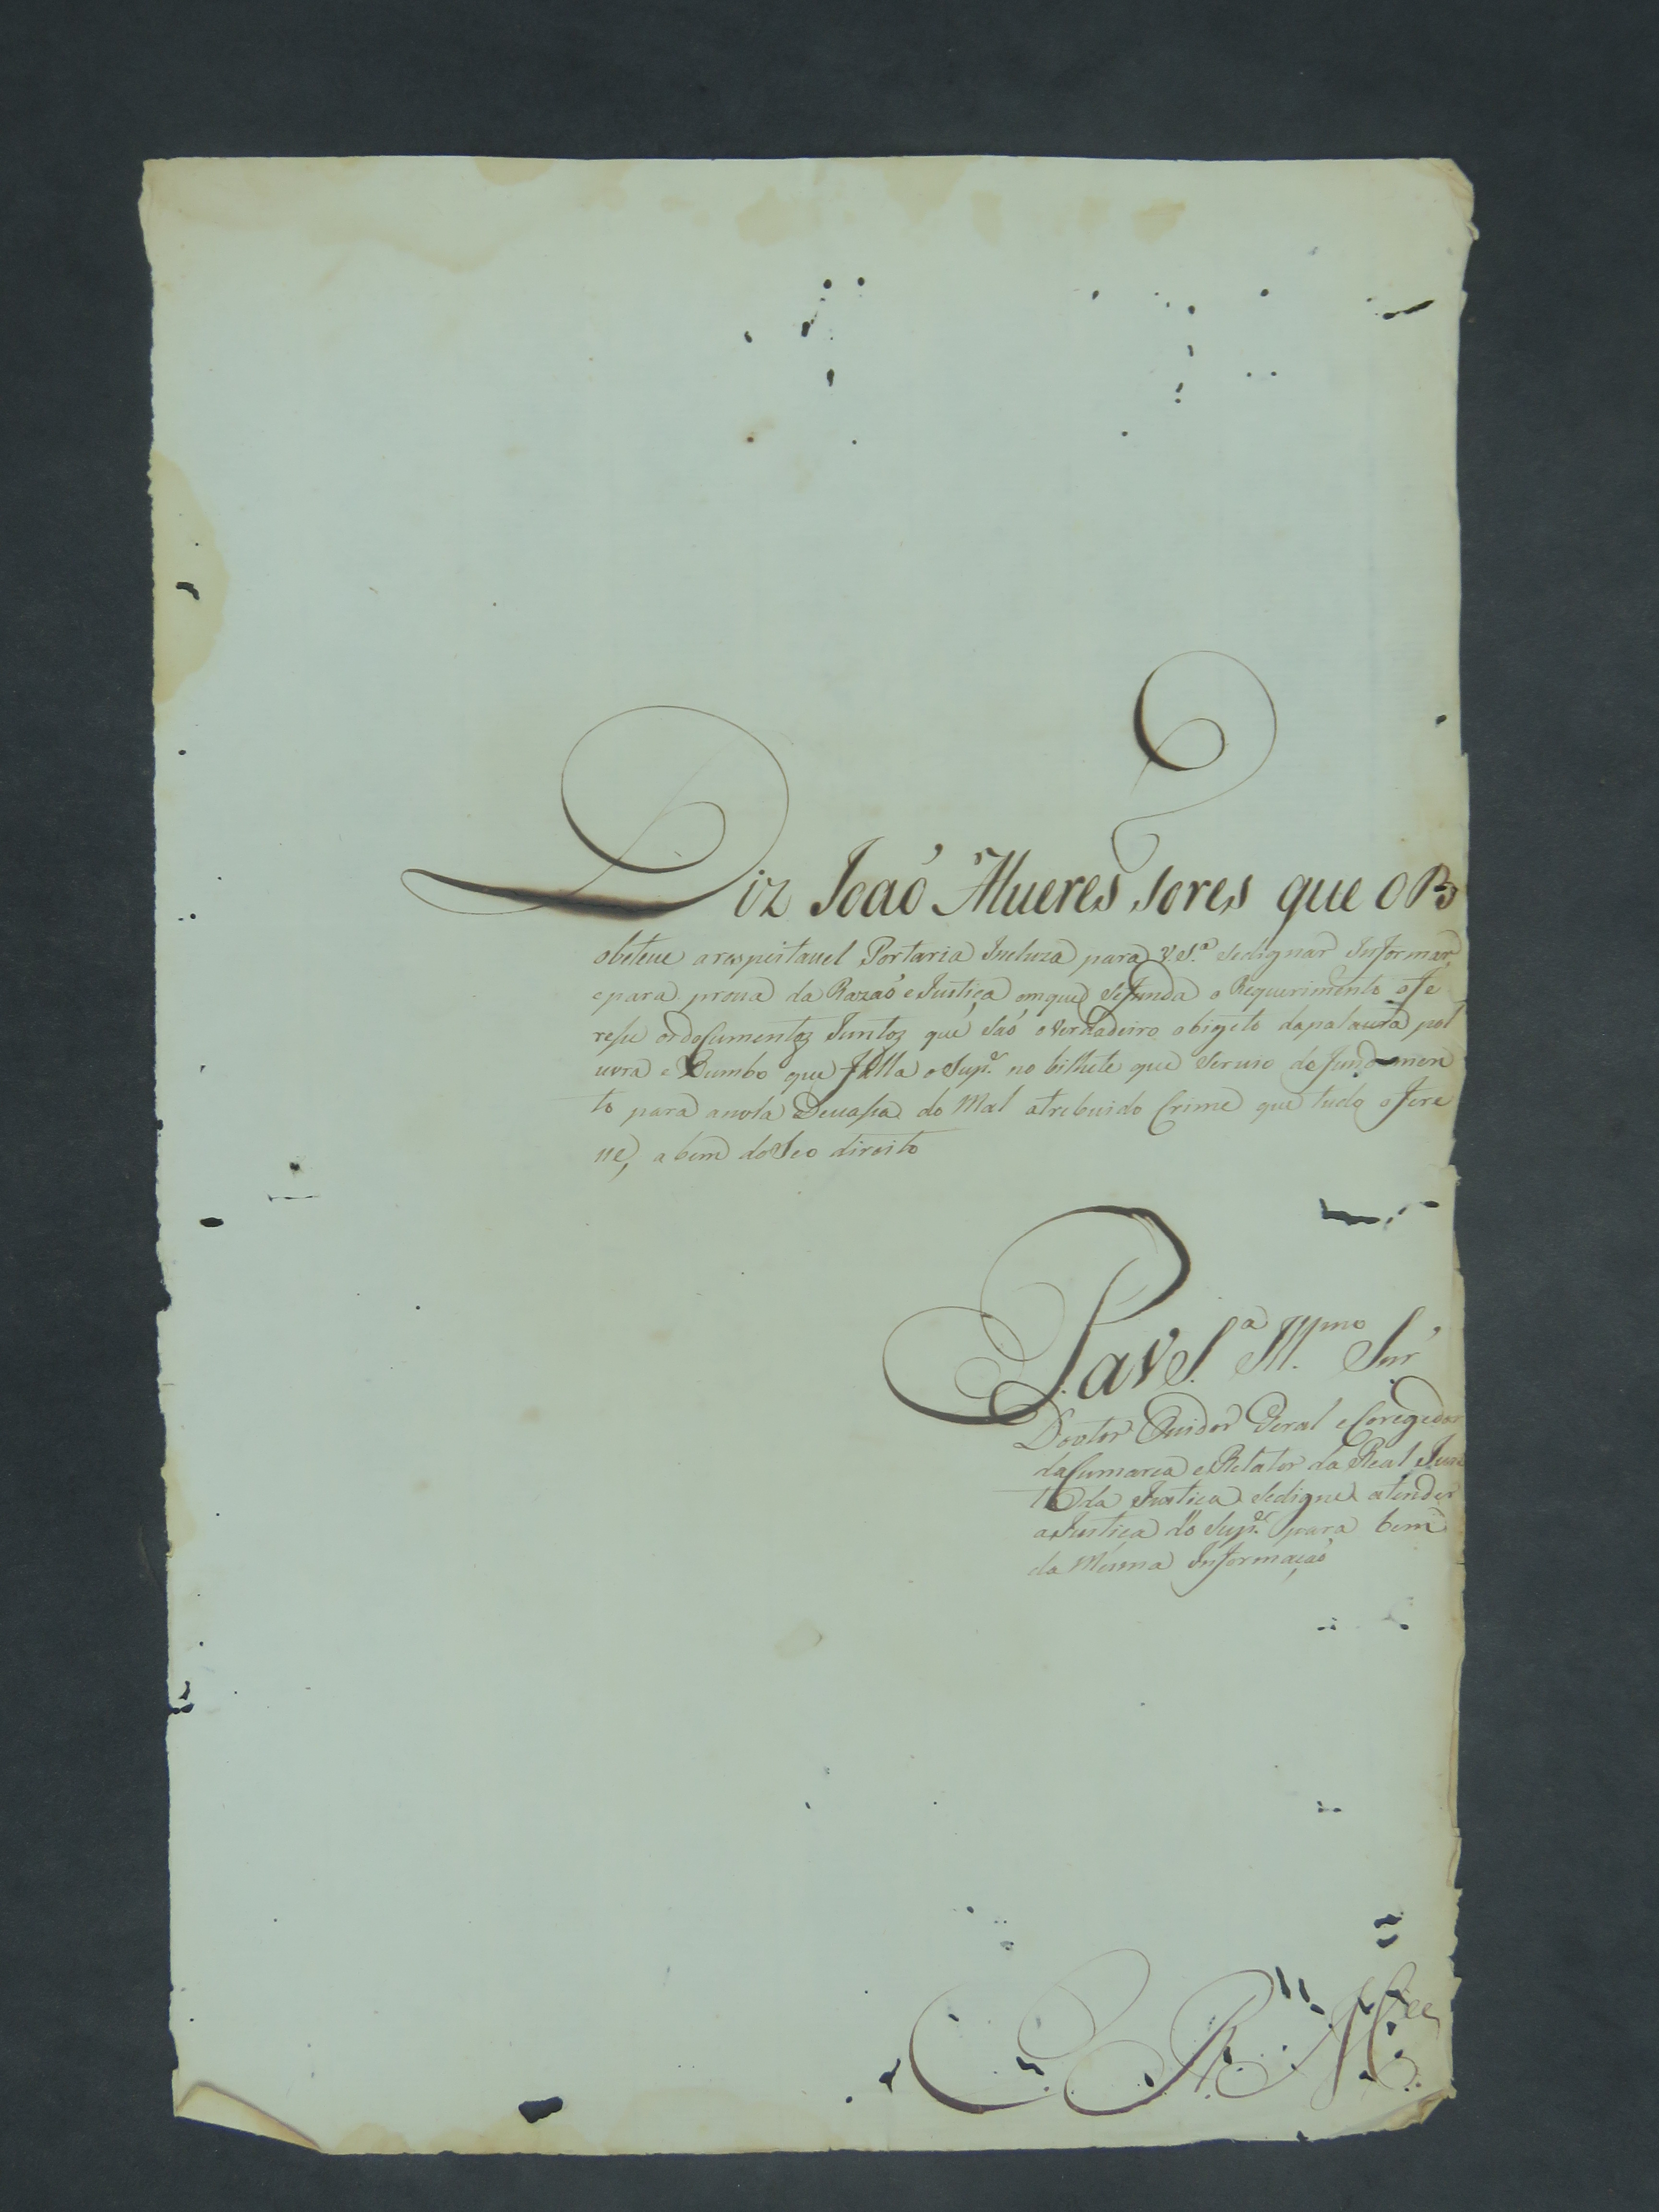 Diz Joaó Alueres Sores que O
obteve a respeitauel Portaria Incluza para V. S.ª Sedignar Informar
e para proua da Razaó e Justiça emque Sefunda o Requerimento ofe
resse os documentoz Juntoz que Saó o Verdadeiro obigeto dapalaura pol
uora e Xumbo que falla o Sup.e no bilhete que Seruio de fundamen
to para anola Deuassa do Mal atrebuido Crime que tudo ofere
se, a bem do Seo direito
P. a V S.ª Ill.mo Snr
Doutor Ouidor Geral e Coregedor
da Cumarca e Relator da Real Jun
ta da Justiça Sedigne atender
a Justiça do Sup.e para bem
da Mesma Informaçaó
E R M.ce